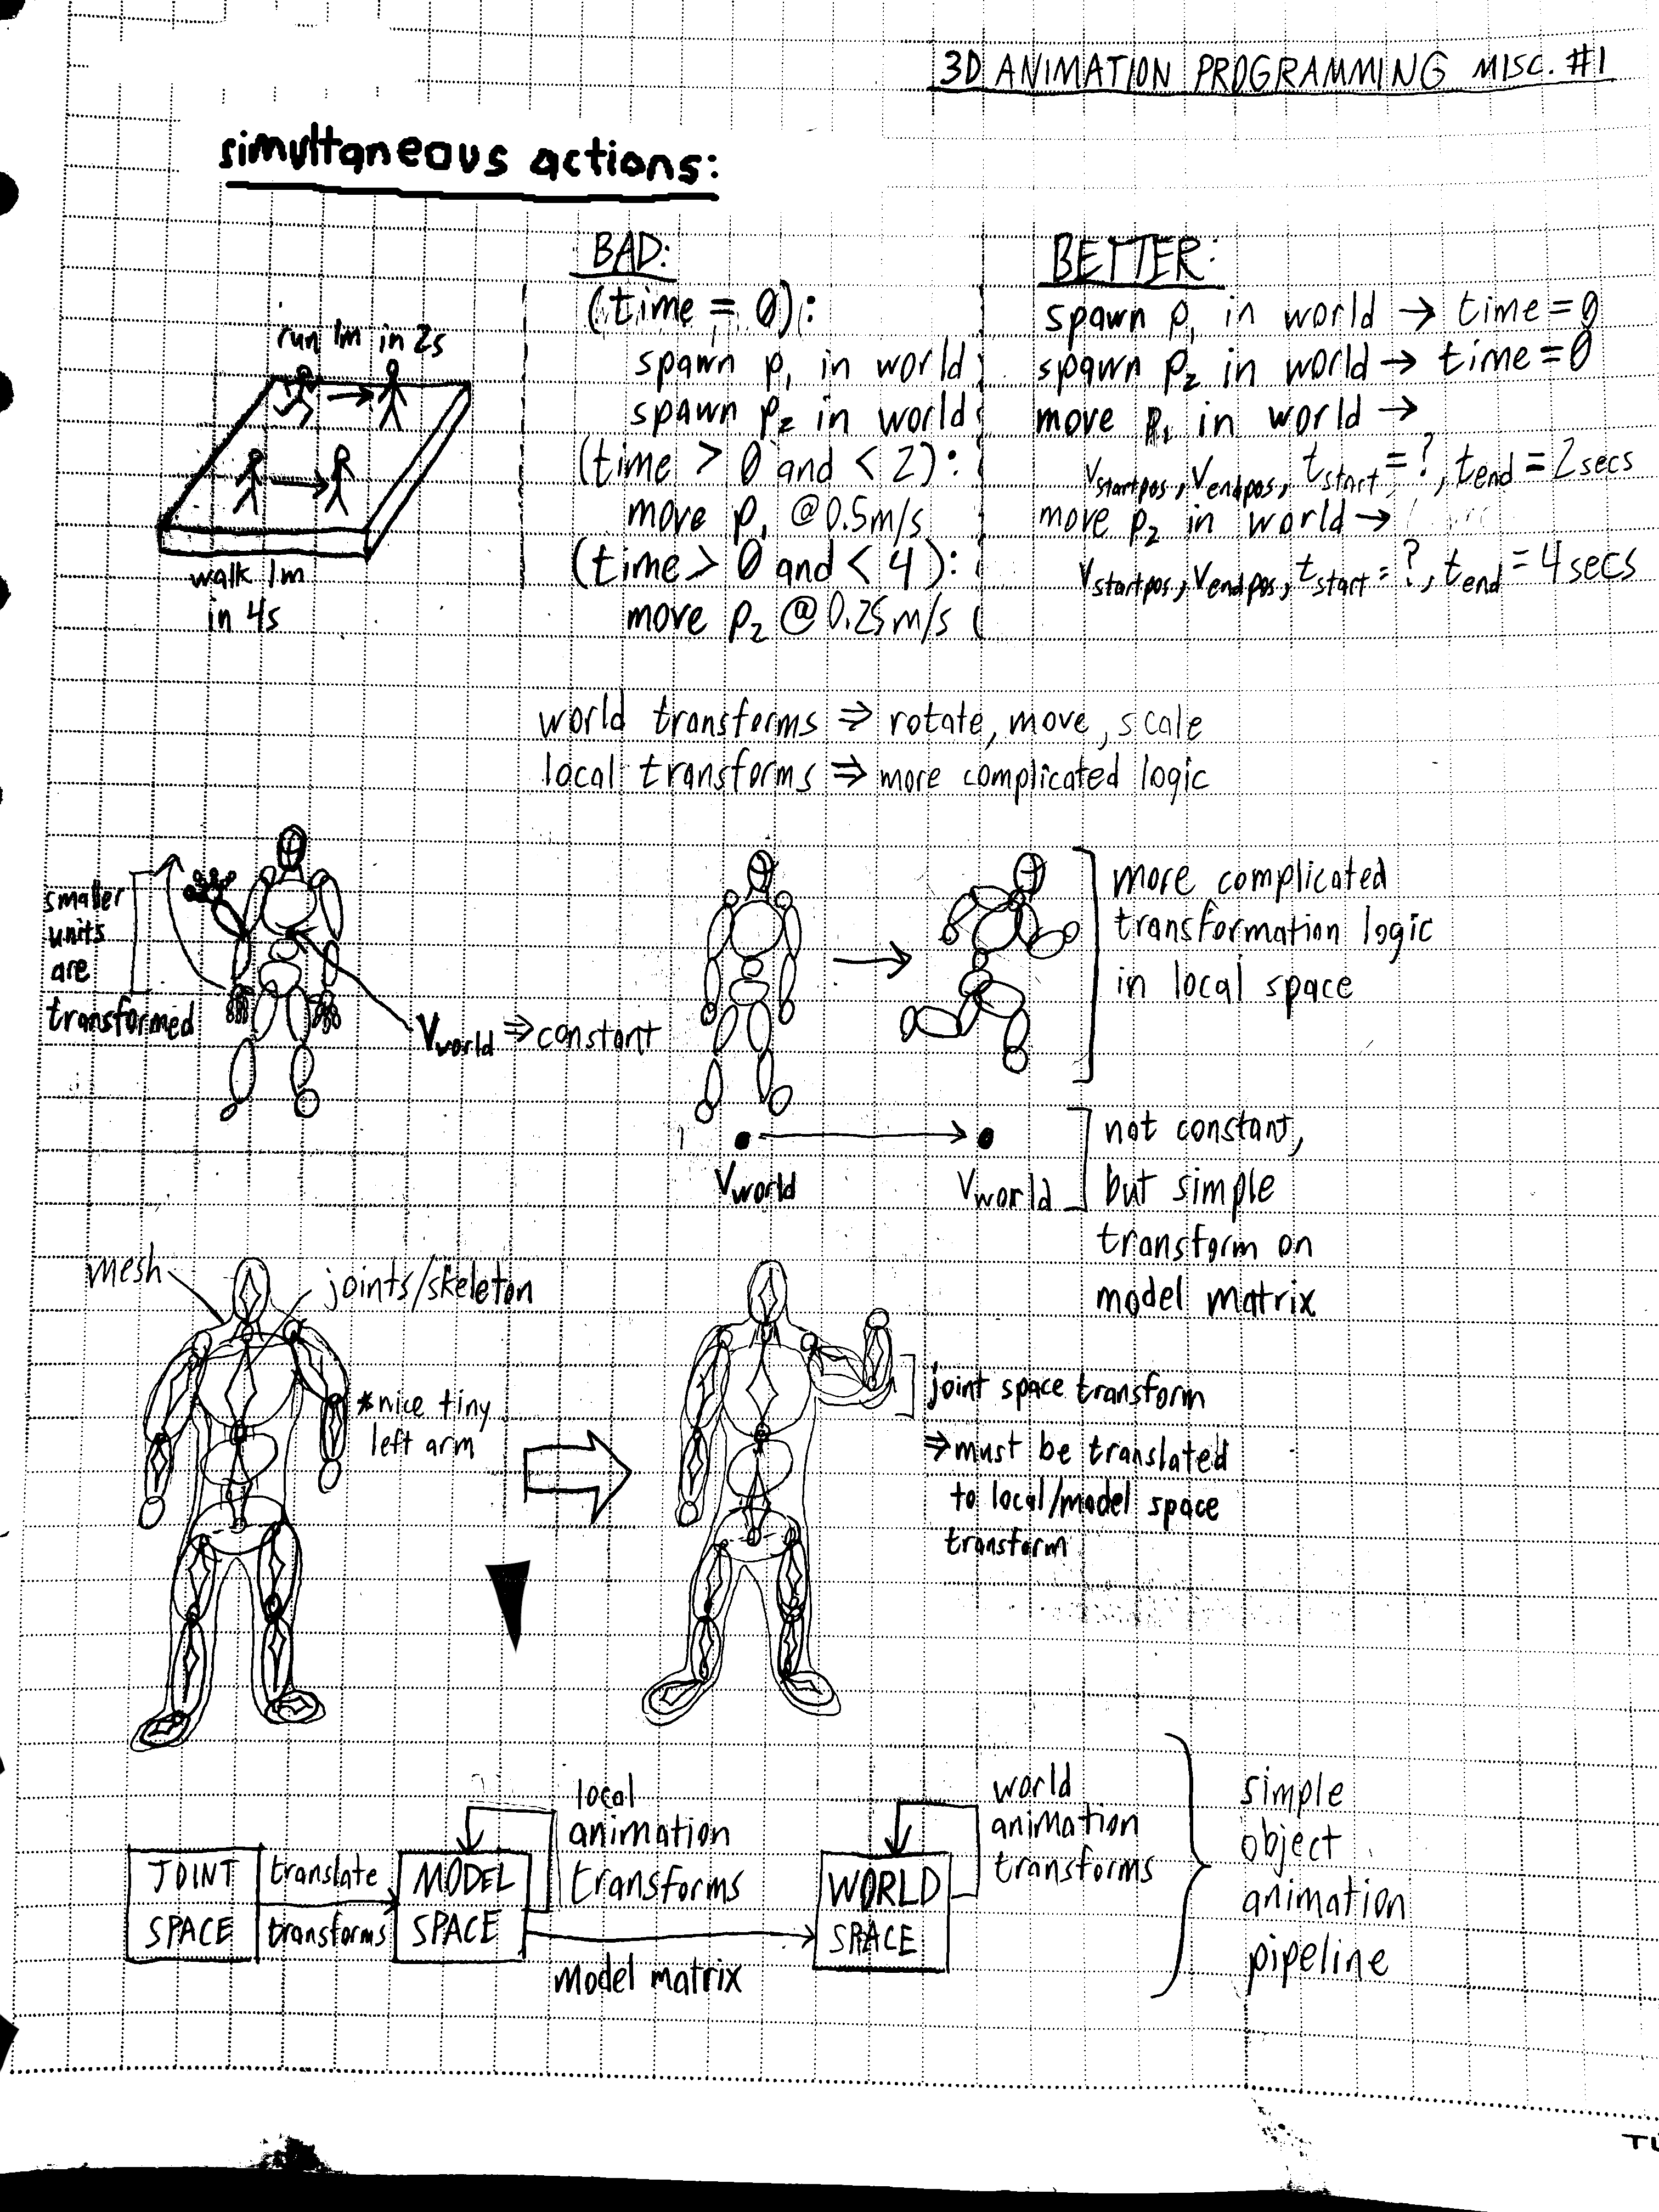 3D ANIMATION PROGRAMMING MISC. #1
simultaneous actions:
run 1m in 2s
walk 1m
in 4s
BAD:
(time = 0):
spawn p1 in world
spawn p2 in world
(time > 0 and < 2):
move p1 @0.5m/s
(time > 0 and < 4):
move p2 @0.25m/s
BETTER:
spawn p1 in world → time = 0
spawn p2 in world → time = 0
move p1 in world →
vstartpos, vendpos, tstart = ?, tend = 2 secs
move p2 in world →
vstartpos, vendpos, tstart = ?, tend = 4 secs
world transforms ⇒ rotate, move, scale
local transforms ⇒ more complicated logic
smaller
units
are
transformed
Vworld ⇒ constant
more complicated
transformation logic
in local space
Vworld
Vworld
not constant,
but simple
transform on
model matrix
mesh
joints/skeleton
*nice tiny
left arm
joint space transform
⇒ must be translated
to local/model space
transform
JOINT
SPACE
translate
transforms
MODEL
SPACE
local
animation
transforms
model matrix
WORLD
SPACE
world
animation
transforms
simple
object
animation
pipeline